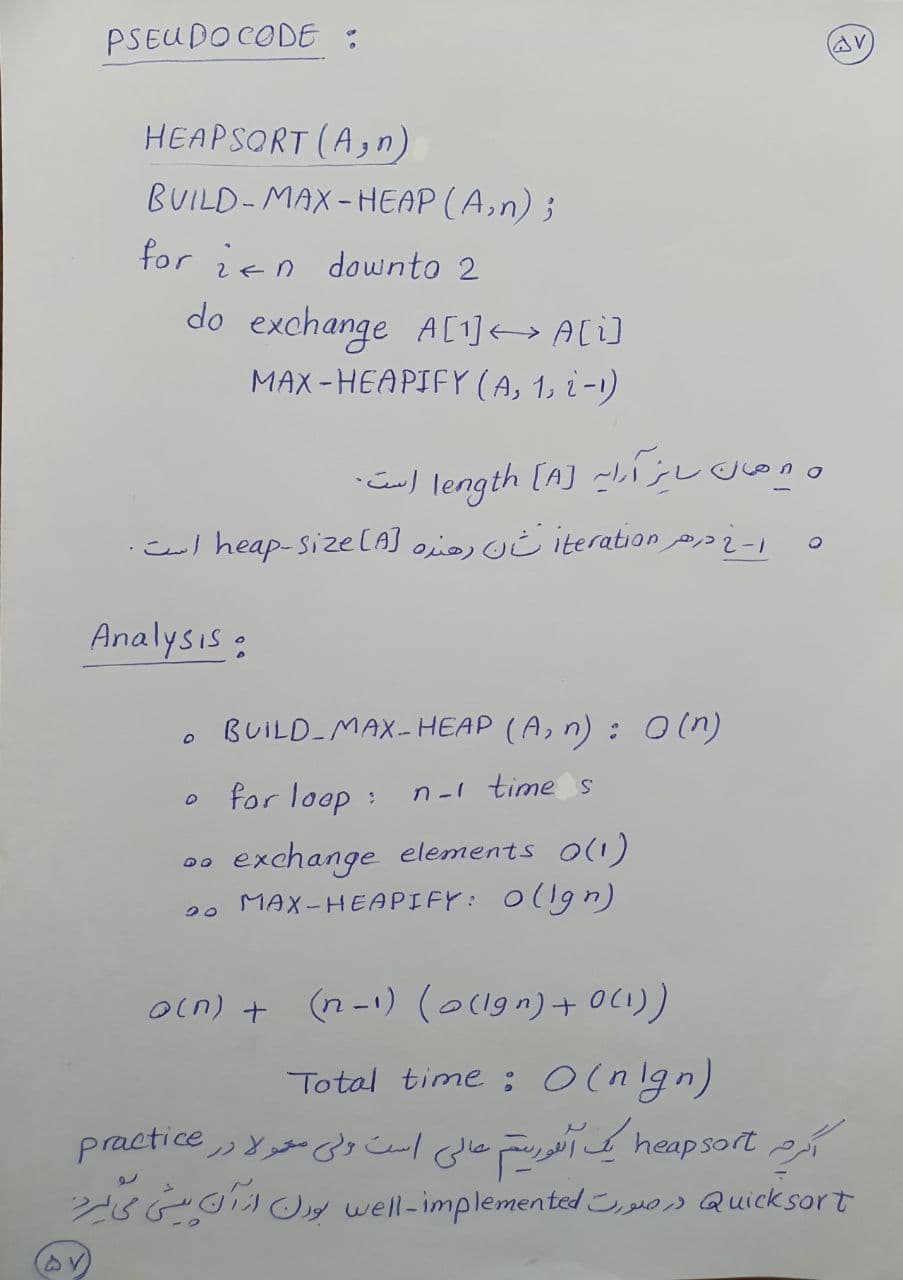 PSEUDOCODE :
۵۷
HEAPSORT(A,n)
BUILD-MAX-HEAP(A,n);
for i ← n downto 2
do exchange A[1] ↔ A[i]
MAX-HEAPIFY(A, 1, i-1)
o n همان سایز آرایه length [A] است.
o i-1 در هر iteration نشان دهنده heap-size[A] است.
Analysis :
o BUILD_MAX-HEAP (A,n) : O(n)
o for loop : n-1 times
oo exchange elements O(1)
oo MAX-HEAPIFY: O(lg n)
O(n) + (n-1) (O(lg n) + O(1))
Total time : O(n lg n)
اگرچه heapsort یک الگوریتم عالی است ولی معمولا در practice
Quicksort در صورت well-implemented بودن از آن پیشی می‌گیرد.
۵۷